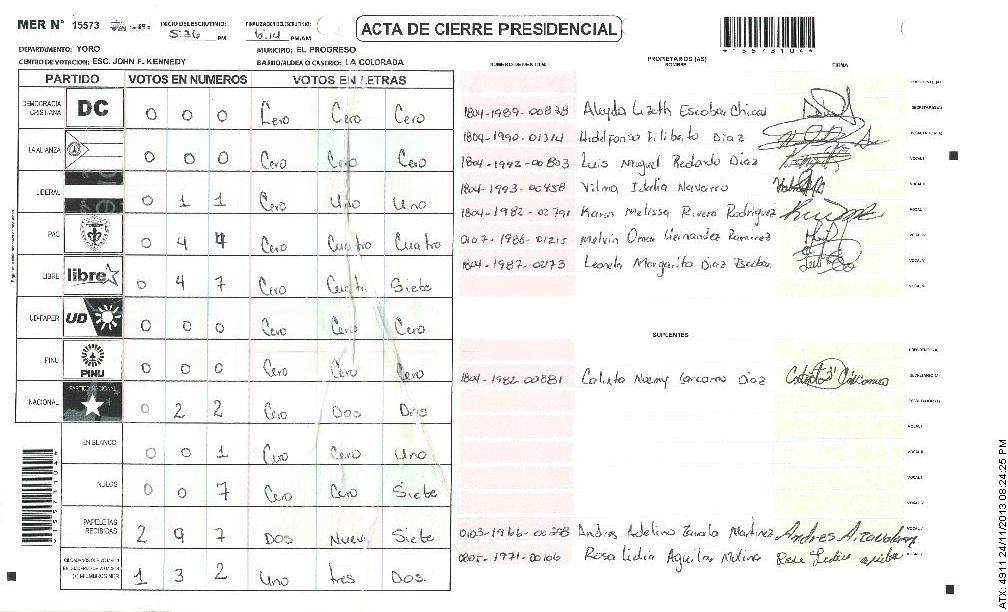 MER Nº 15573 INICIO DEL ESCRUTINIO: 5:36 PM FINALIZACION DEL ESCRUTINIO: 6:14 PM/AM ACTA DE CIERRE PRESIDENCIAL
DEPARTAMENTO: YORO MUNICIPIO: EL PROGRESO
CENTRO DE VOTACION: ESC. JOHN F. KENNEDY BARRIO/ALDEA O CASERIO: LA COLORADA
PARTIDO VOTOS EN NUMEROS VOTOS EN LETRAS
NUMERO DE IDENTIDAD PROPIETARIOS (AS) NOMBRE FIRMA
DEMOCRACIA CRISTIANA DC 0 0 0 Cero Cero Cero
LA ALIANZA 0 0 0 Cero Cero Cero
LIBERAL 0 1 1 Cero Uno Uno
PAC 0 4 4 Cero Cuatro Cuatro
LIBRE libre 0 4 7 Cero Cuatro Siete
UD-FAPER UD 0 0 0 Cero Cero Cero
PINU PINU 0 0 0 Cero Cero Cero
NACIONAL PARTIDO NACIONAL 0 2 2 Cero Dos Dos
EN BLANCO 0 0 1 Cero Cero Uno
NULOS 0 0 7 Cero Cero Siete
PAPELETAS RECIBIDAS 2 9 7 Dos Nueve Siete
1 3 2 Uno tres Dos
PRESIDENTE (A)
1804-1989-00828 Aleyda Lizeth Escobar Chicas SECRETARIO (A)
1804-1990-01314 Hidelfonso Filiberto Diaz ESCRUTADOR (A)
1804-1992-00803 Luis Miguel Redondo Diaz VOCAL I
1804-1993-00458 Vilma Idalia Navarro VOCAL II
1804-1982-02791 Karen Melissa Rivera Rodriguez VOCAL III
0107-1986-01215 Melvin Omar Hernandez Ramirez VOCAL IV
1804-1987-0273 Leonela Margarita Diaz Escobar VOCAL V
SUPLENTES
PRESIDENTE (A)
1804-1982-00881 Calixta Noemy Carcamo Diaz SECRETARIO (A)
ESCRUTADOR (A)
VOCAL I
VOCAL II
VOCAL III
VOCAL IV
0103-1966-00398 Andres Adelino Zavala Martinez
0805-1971-00106 Rosa Lidia Aguilar Molina
ATX: 4911 24/11/2013 08:24:25 PM